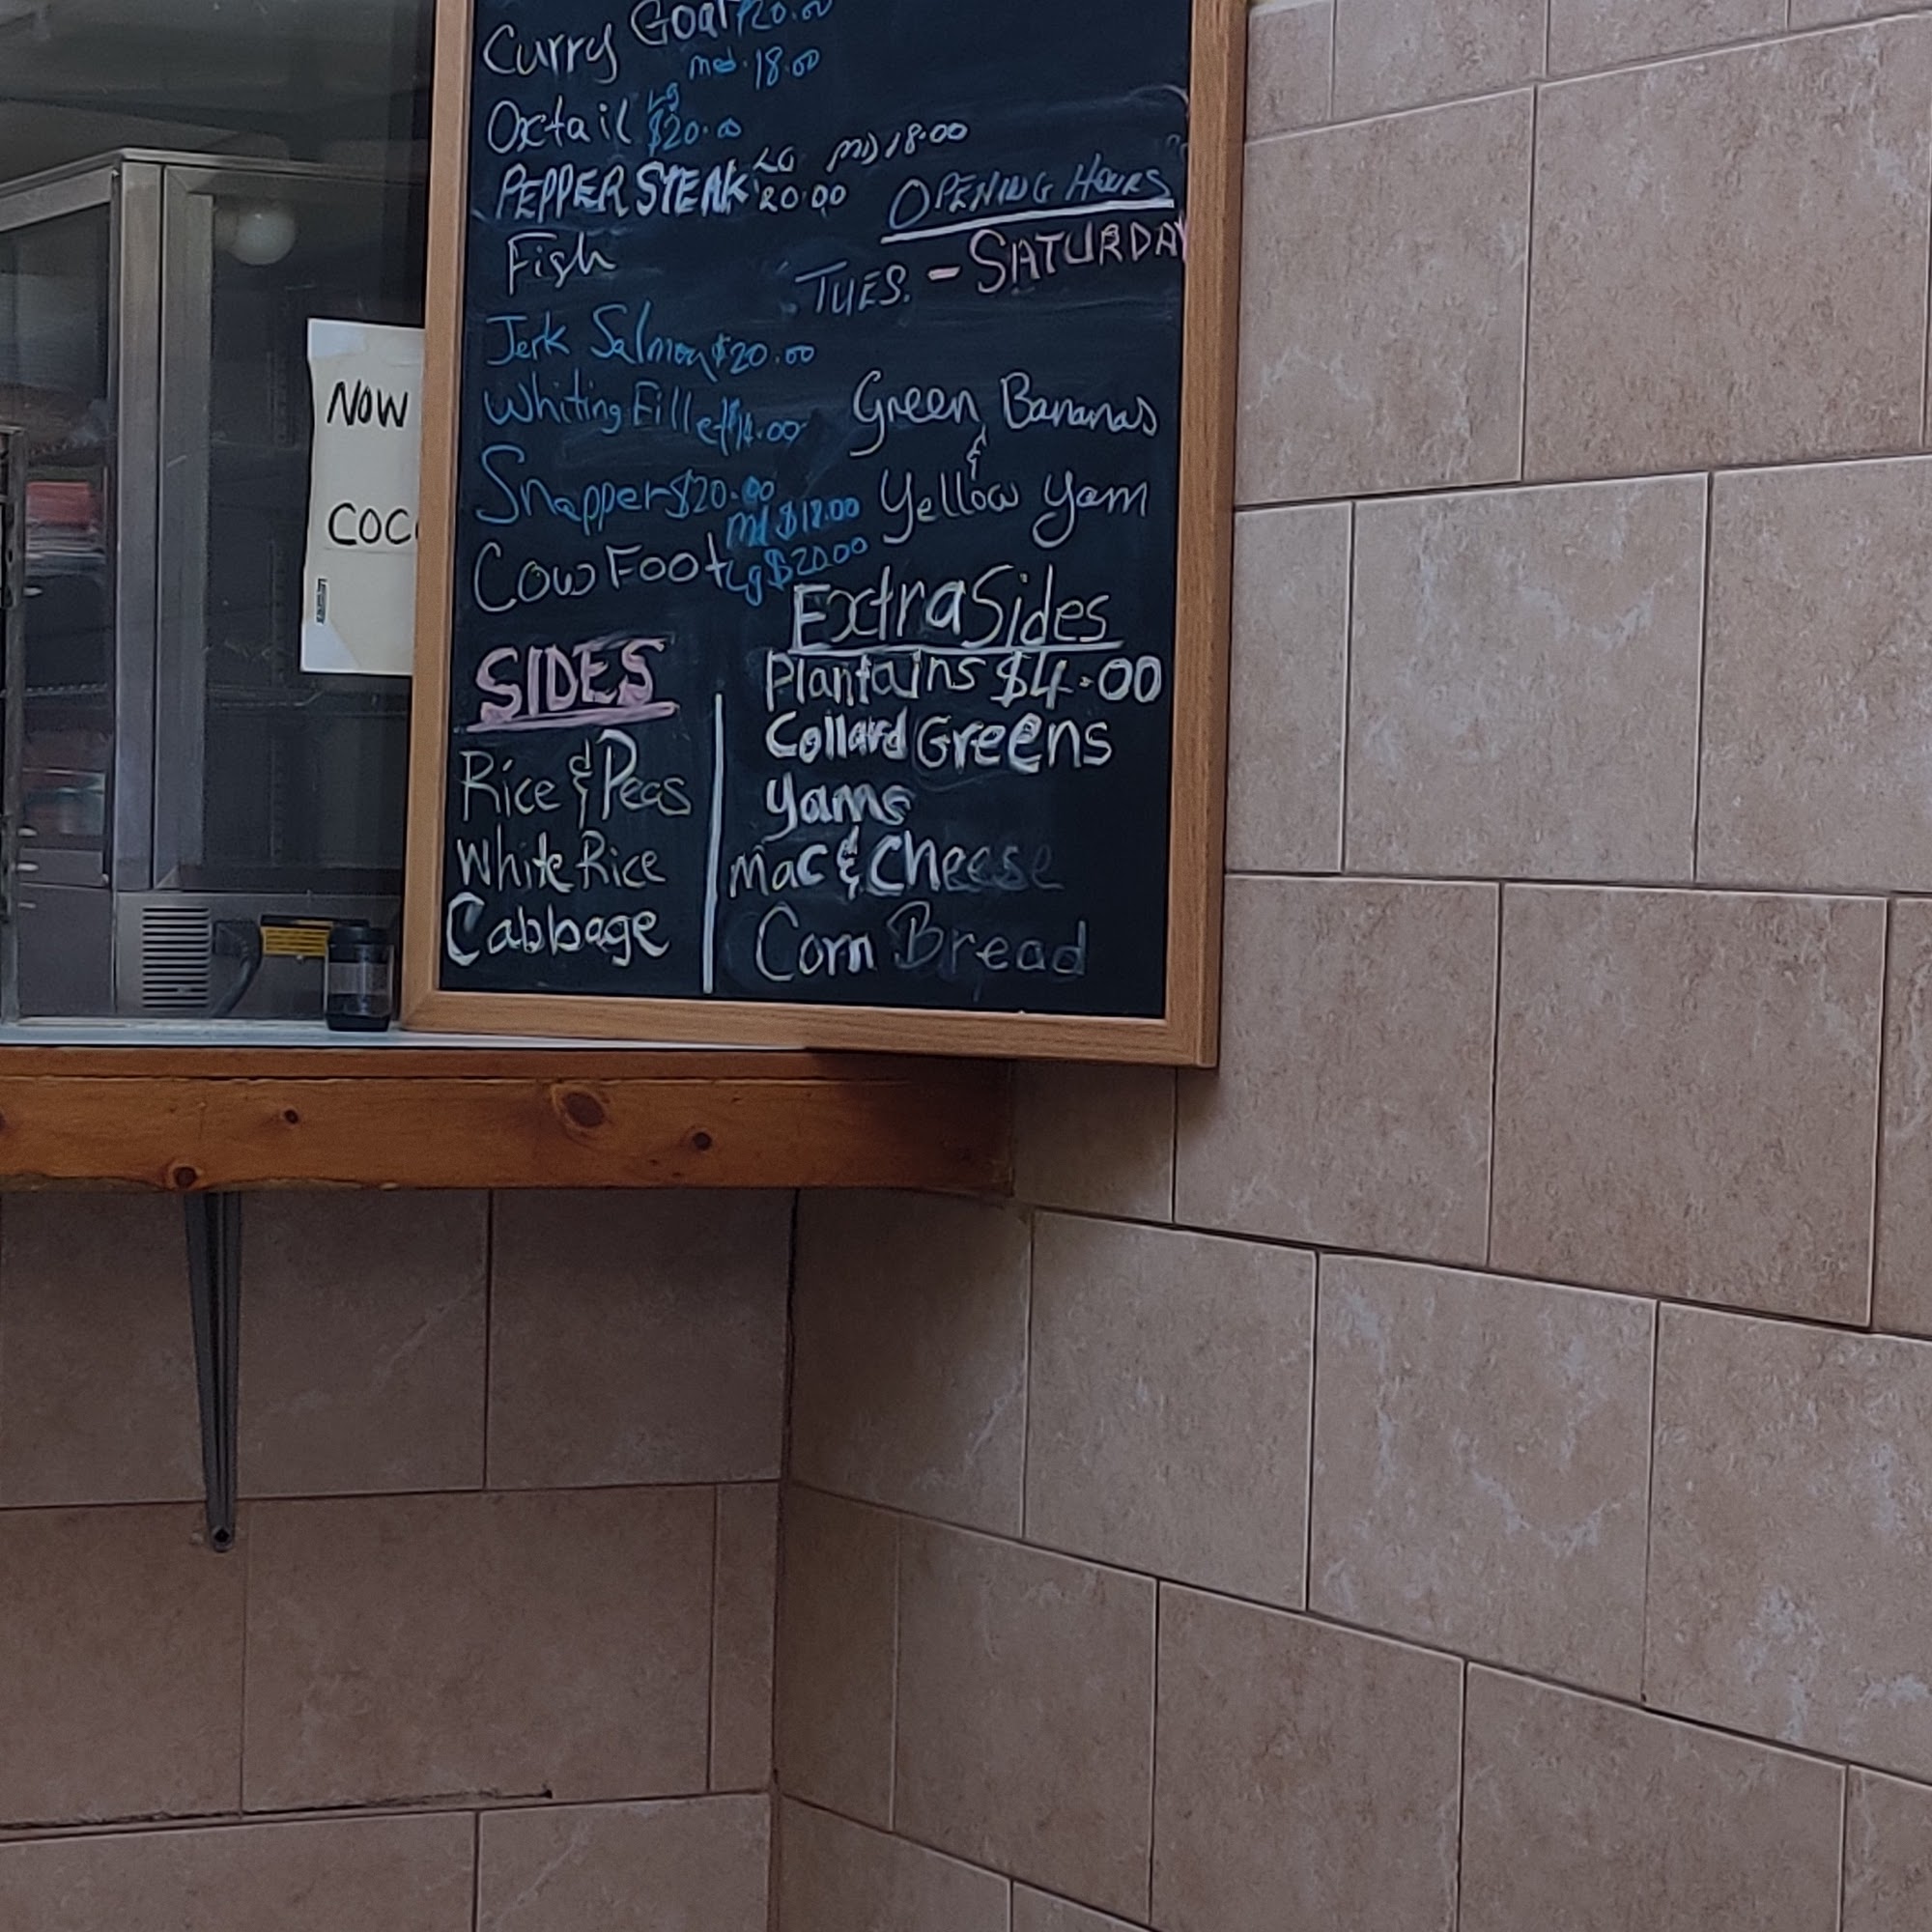 Curry Goat $20.00
med. 18.00
Lg
Oxtail $20.00
LG MD 18.00
PEPPER STEAK 20.00
Fish
Jerk Salmon $20.00
Whiting Fillet $14.00
Snapper $20.00
Md $18.00
Cow Foot Lg $20.00
SIDES
Rice & Peas
White Rice
Cabbage
OPENING HOURS
TUES. - SATURDAY
Green Bananas
&
Yellow Yam
Extra Sides
Plantains $4.00
Collard Greens
Yams
Mac & Cheese
Corn Bread
NOW
COC